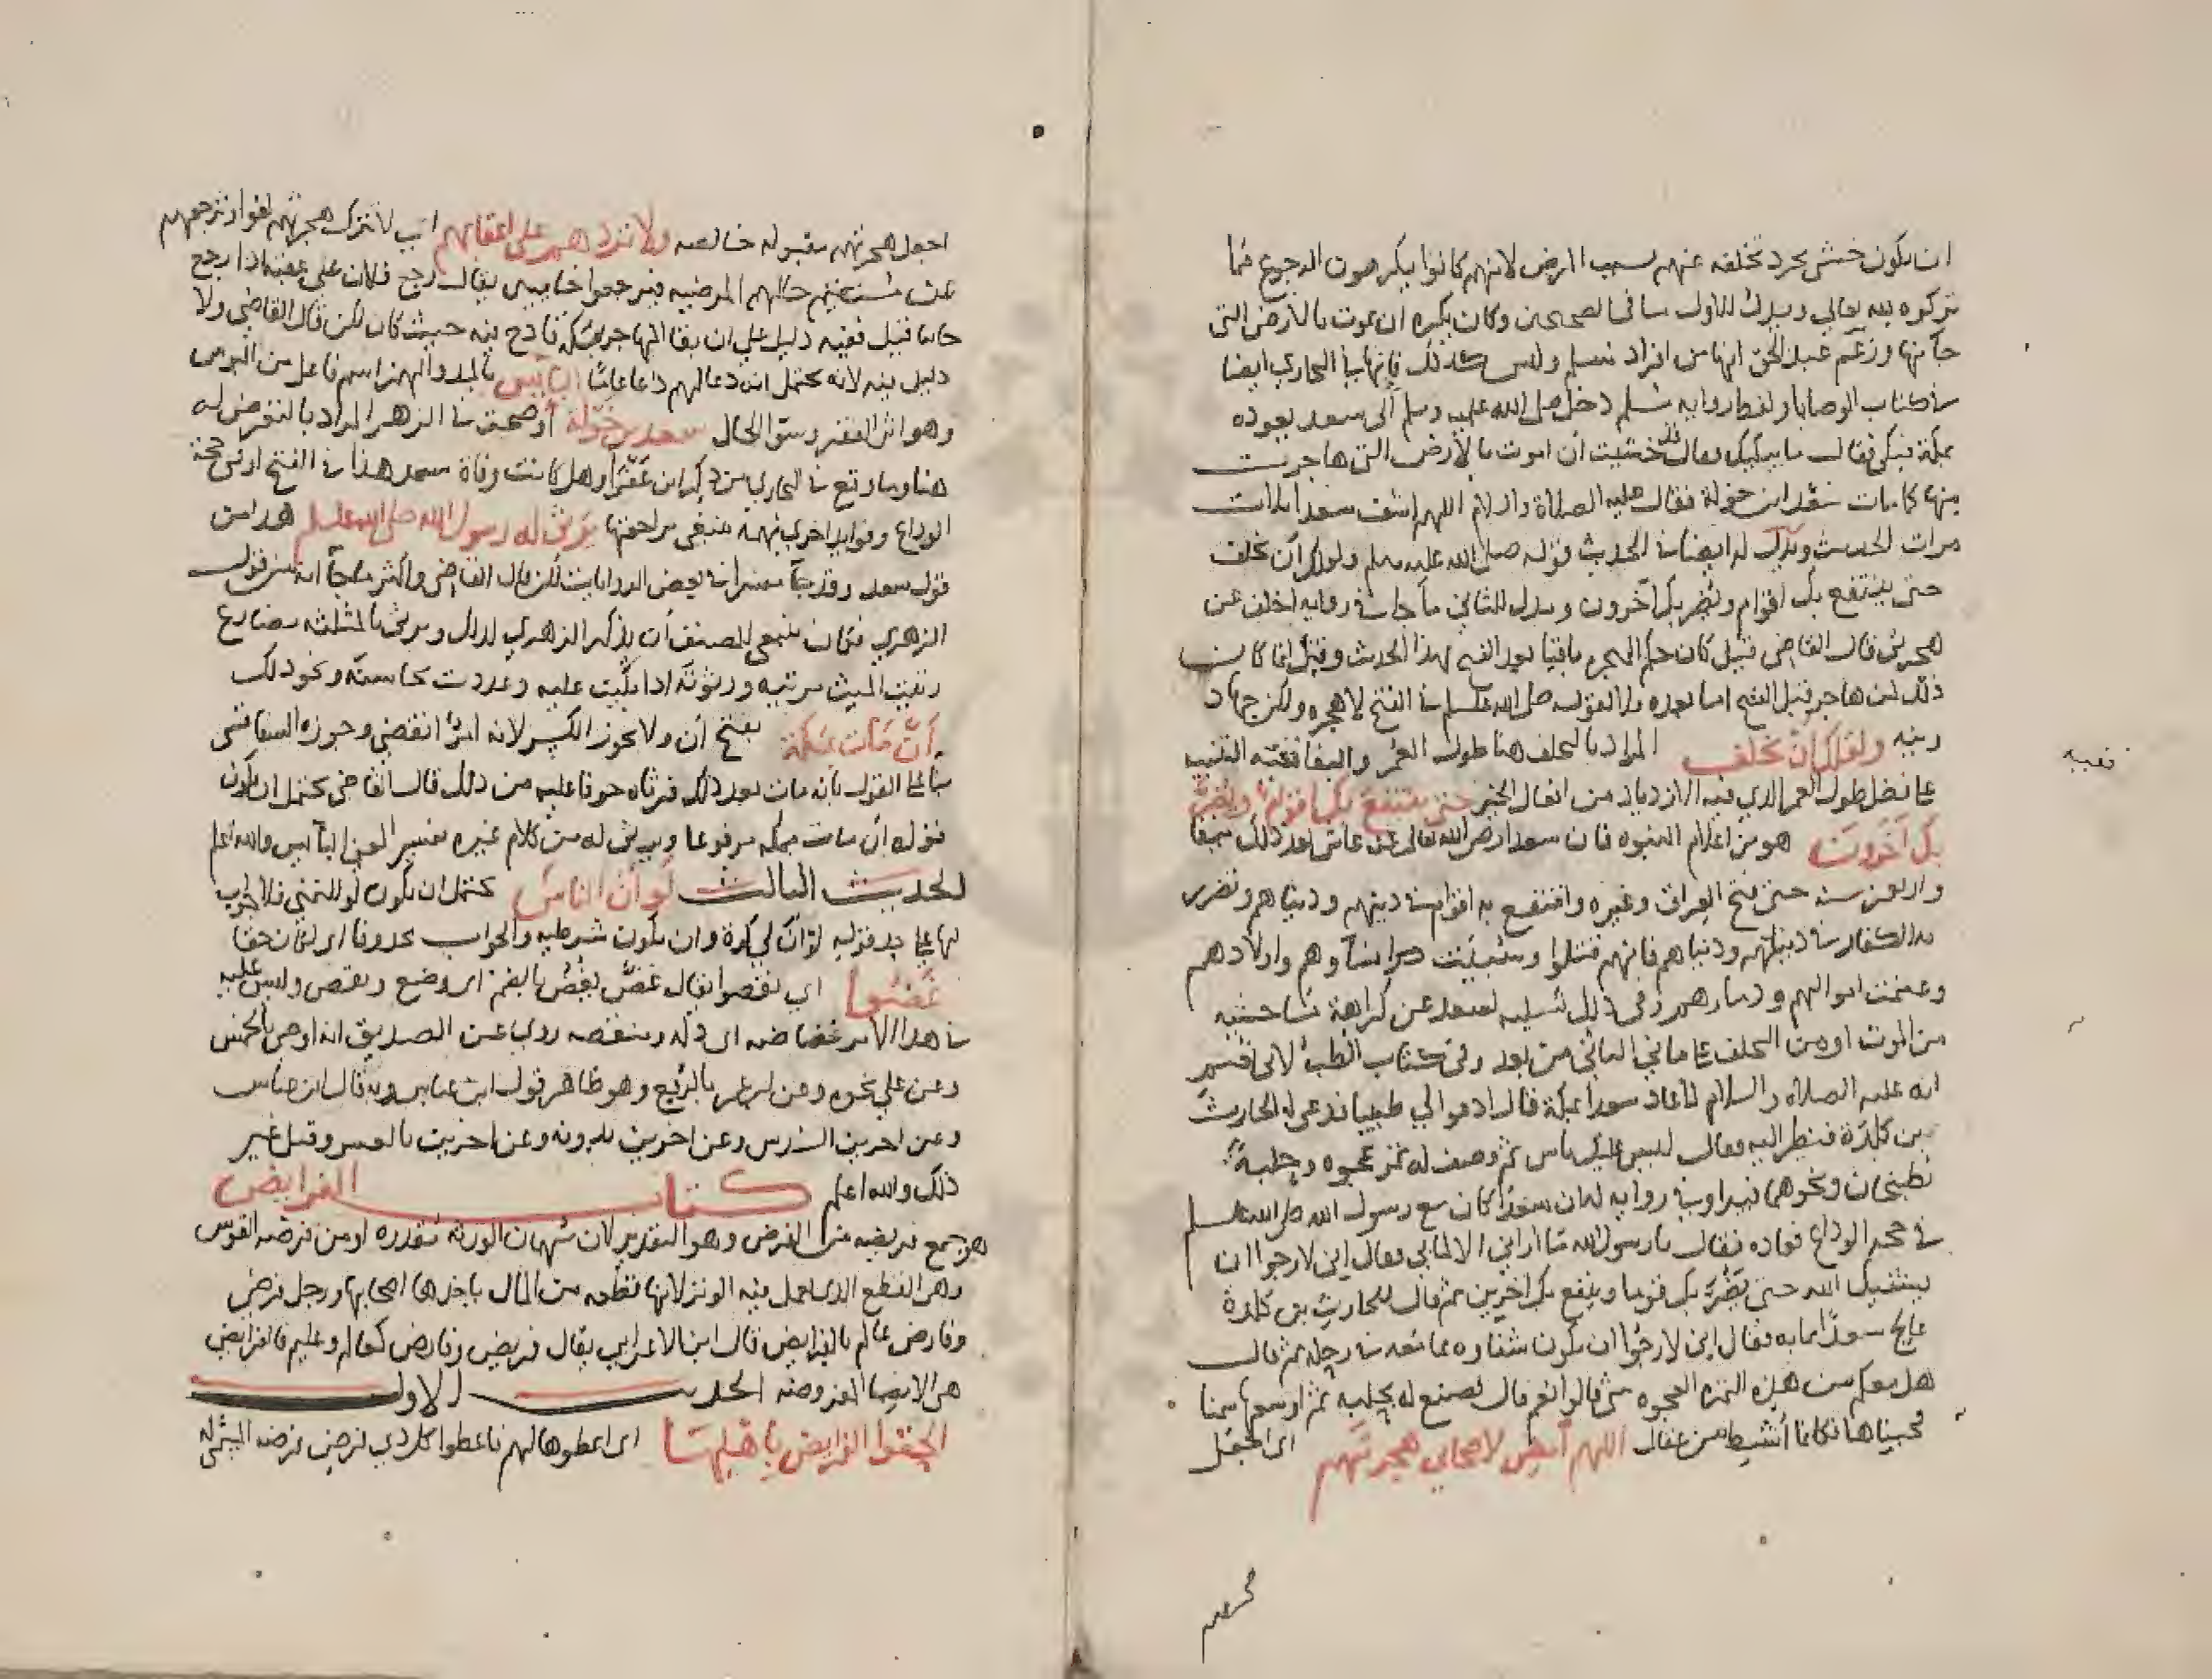 ان يكون خشي مجرد تخلفه عنهم بسبب المرض لانهم كانوا يكرهون الرجوع فيما
تركوه لله تعالى ويدل للاول ما في الصحيحين وكان يكره ان يموت بالارض التي
هاجر منها وزعم عبد الحق انها من افراد مسلم وليس كذلك فانها في البخاري ايضا
في كتاب الوصايا ولفظ رواية مسلم دخل صلى الله عليه وسلم الى سعد يعوده
بمكة فبكى فقال ما يبكيك فقال قد خشيت ان اموت بالارض التي هاجرت
منها كما مات سعد ابن خولة فقال عليه الصلاة والسلام اللهم اشف سعدا ثلاث
مرات الحديث ويدل له ايضا في الحديث قوله صلى الله عليه وسلم ولعلك ان تخلف
حتى ينتفع بك اقوام ويضر بك آخرون ويدل للثاني ما جاء في رواية اخلف عن
هجرتي قال القاضي قيل كان حكم الهجرة باقيا بعد الفتح بهذا الحديث وقيل انما كان
ذلك لمن هاجر قبل الفتح اما بعده فلا لقوله صلى الله عليه وسلم في الفتح لا هجرة ولكن جهاد
ونية ولعلك ان تخلف المراد بالتخلف هنا طول العمر والبقا ففيه التنبيه
على فضل طول العمر الذي فيه الازدياد من افعال الخير حتى ينتفع بك اقوام ويضر
بك آخرون هو من اعلام النبوه فان سعدا رضي الله تعالى عنه عاش بعد ذلك نيفا
واربعين سنة حتى فتح العراق وغيره وانتفع به اقوام في دينهم ودنياهم وتضرر
به الكفار في دينهم ودنياهم فانهم قتلوا وسبيت نساؤهم واولادهم
وغنمت اموالهم وديارهم وفي ذلك تسلية لسعد عن كراهة ما خشيه
من الموت او من التخلف على ما في الثاني من بعد وفي كتاب الطب لابي نعيم
انه عليه الصلاة والسلام لما عاد سعدا بمكة قال ادعوا لي طبيبا فدعي له الحارث
بن كلدة فنظر اليه فقال ليس عليك باس ثم وصف له تمر عجوه وحلبة
تطبخان ونحوهما فبرا وفي رواية له ان سعدا كان مع رسول الله صلى الله عليه وسلم
في حجة الوداع فعاده فقال يا رسول الله ما اراني الا لمابي فقال اني لارجوا ان
يشفيك الله حتى يضر بك قوما وينفع بك اخرين ثم قال للحارث بن كلدة
عالج سعدا مما به فقال اني لارجوا ان يكون شفاوه مما معه في رحله ثم قال
هل معكم من هذه التمرة العجوه شي قالوا نعم قال فصنع له بحلبة ثم اوسعها سمنا
فحسيناها فكانما انشط من عقال اللهم امض لاصحابي هجرتهم اي اجعل
تنبيه
اجعل هجرتهم مقبولة خالصه ولا تردهم على اعقابهم اي لا تترك هجرتهم لغوا وترجعهم
عن مستقيم حالهم المرضيه فيرجعوا خايبين يقال رجع فلان على عقبه اذا رجع
خايبا قيل ففيه دليل على ان بقا المهاجر بمكة قادح فيه حيث كان لكن قال القاضي ولا
دليل فيه لانه يحتمل انه دعا لهم دعا عاما البايس بالمد والهمز اسم فاعل من البوس
وهو اثر الفقر وسوّ الحال سعد بن خولة اوضحت في الزهر المراد بالتعرض له
هنا وما وقع في البخاري من ذكر ابن عفرا وهل كانت وفاة سعد هذا في الفتح او في حجة
الوداع وفوايد اخرى مهمة فينبغي مراجعتها يرثي له رسول الله صلى الله عليه وسلم هذا من
قول سعد وقد جا مفسرا في بعض الروايات لكن قال القاضي واكثر ما جا انه من قول
الزهري فكان ينبغي للمصنف ان يذكر الزهري لذلك ويرثي بالمثلثه مضارع
رثيت الميت مرثيه ورثوته اذا بكيت عليه وعددت محاسنه ونحو ذلك
ان مات بمكة بفتح ان ولا يجوز الكسر لانه امر انقضى وجوزه السفاقسي
بنا على القول بانه مات بعد ذلك فرثاه خوفا عليه من ذلك قال القاضي يحتمل ان يكون
قوله ان مات بمكة مرفوعا ويرثي له من كلام غيره تفسير لمعنى البايس والله اعلم
الحديث الثالث لو ان الناس يحتمل ان يكون لو للتمني فلا جواب
لها على حد قوله لو ان لي كرة وان يكون شرطيه والجواب محذوفا اي لكان حقا
غضوا اي نقصوا يقال غض يغض بالضم اي وضع ونقص وليس عليه
في هذا الامر غضاضه اي ذلة ومنقصه روي عن الصديق انه اوصى بالخمس
وعن علي نحوه وعن ابن عمر بالربع وهو ظاهر قول ابن عباس وبه قال ابن عباس
وعن اخرين السدس وعن اخرين بدونه وعن اخرين بالعشر وقيل غير
ذلك والله اعلم كتاب الفرايض
هو جمع فريضه من الفرض وهو التقدير لان سهمان الورثة مقدره او من فرضة القوس
وهي القطع الذي يعمل فيه الوتر لانها قطعه من المال ياخذها اصحابها ورجل فرضي
وفارض عالم بالفرايض قال ابن الاعرابي يقال فريض وفارض كعالم وعليم فالفرايض
هي الانصبا المفروضه الحديث الاول
الحقوا الفرايض باهلها اي اعطوها لهم فاعطوا كل ذي فرض فرضه المسمى له